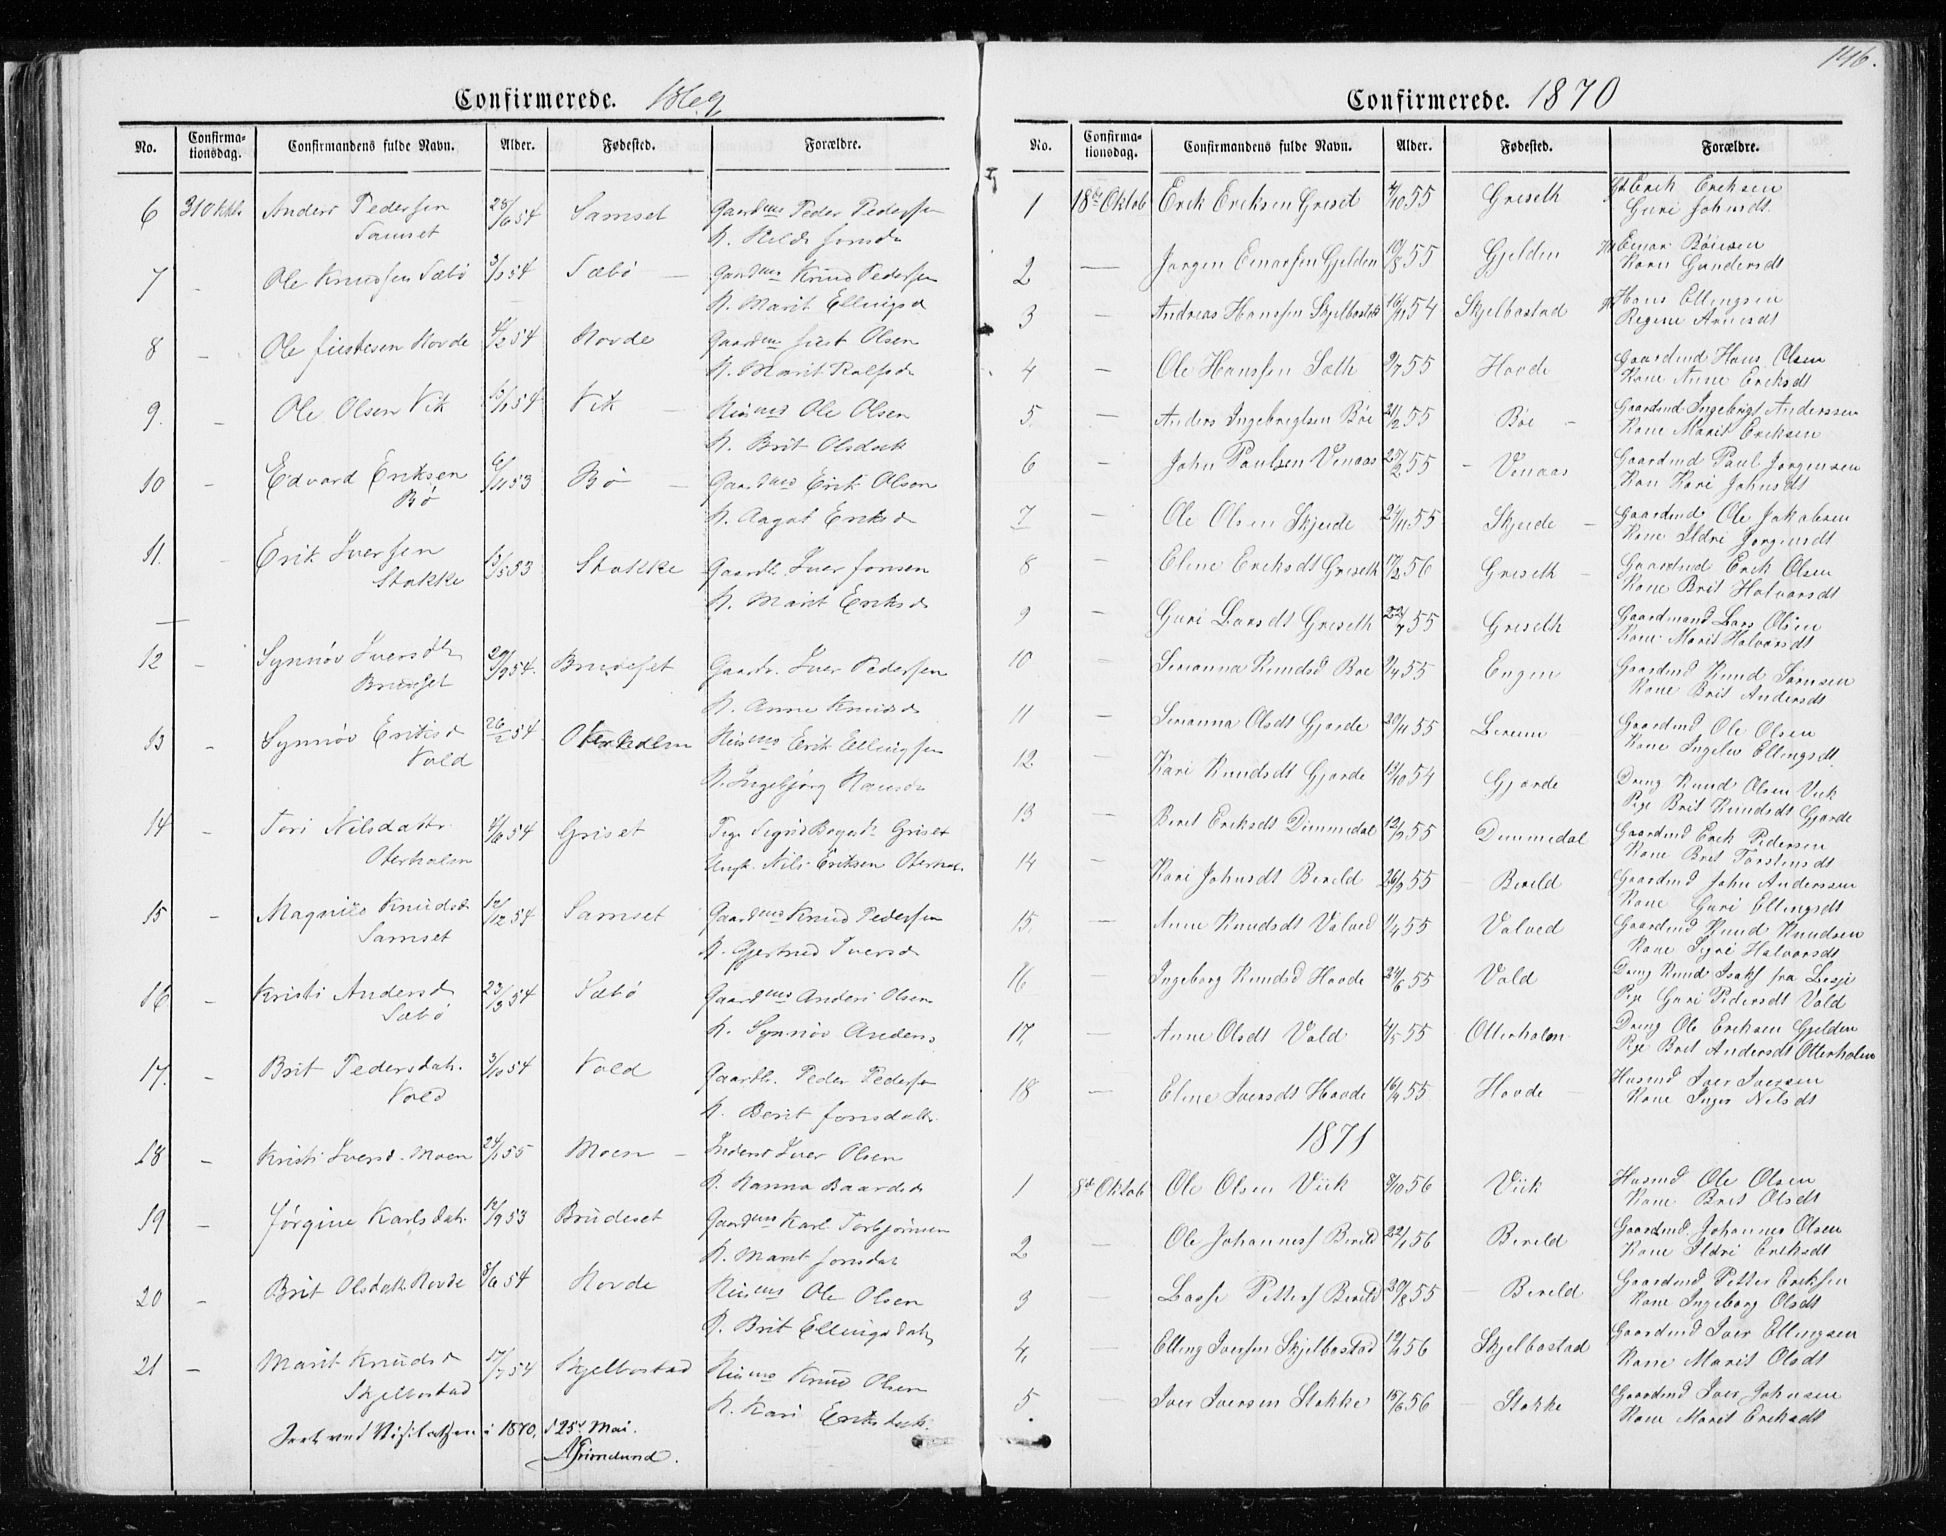 Confirmerede. 1869
No. Confirmationsdag. Confirmandens fulde Navn. Alder. Fødested. Forældre.
6 3 Oktbr Anders Pedersen 23/6 54 Samset Gaardms Peder Pedersen
Samset K. Jonsdr
7 - Ole Knudsen Sæbø 54 Sæbø - Gaardms Knud Pedersen
K. Marit Ellingsd
8 - Ole Hovde 4/2 54 Hovde Gaardms Olsen
K. Marit
9. - Ole Olsen Vik 15/1 54 Vik - Husms Ole Olsen
K. Brit Olsdatt
10 - Edvard Eriksen 6/11 53 Bø - Gaardms Erik Olsen
Bø K. Aagot Eriksdr
11. - Erik Iversen 53 Stokke Gaardbr. Iver Jonsen
Stokke K. Marit Eriksdr
12 - Synnøv Iversdtr 29/9 54. Brudeset Gaardbr. Iver Pedersen
Brudeset K. Anne Knudsdr
13 - Synnøv Eriksdr 26/2 54 Oterholm Husms Erik Ellingsen
Vold K. Ingebjørg Hansdr
14 - Tori Nilsdattr. 4/6 54 Griset Pige Sigrid Griset
Oterholm Ungk. Nils Eriksen Oterhol.
15 - Knudsdr 12/12 54 Samset Gaardms Knud Pedersen
Samset K. Gjertrud Iversdr
16 - Kristi Andersdr 23/3 54 Sæbø Gaardms Anders Olsen
Sæbø K. Synnøv Anders.
17. - Brit Pedersdatr. 3/10 54 Vold Gaardbr. Peder Pedersen
Vold K. Berit Jonsdattr
18 - Kristi Iversd. Moen 24/1 55 Moen - Inderst Iver Olsen
K. Hanna Baardsdr
19 - Jørgine Karlsdatr. 12/9 53 Brudeset Gaardms Karl Torbjørnsen
K. Marit Jonsdat
20 - Brit Olsdatt. Hovde 8/6 54 Hovde Husms Ole Olsen
K. Brit Ellingsdatr
21 - Marit Knudsdr 17/7 54 Skjelbostad Husms Knud Olsen
Skjelbostad K. Kari Eriksdatt.
ved Visitatsen i 1870, d 25d Mai.
Grimelund.
146.
Confirmerede. 1870
No. Confirmationsdag. Confirmandens fulde Navn. Alder. Fødested. Forældre.
1 18de Oktob Erik Eriksen Griset 4/10 55 Griseth Erik Eriksen
Guri Johnsdt.
2 - Jørgen Einarsen Gjelden 10/8 55 Gjelden Einar Böiesen
Karn Gundersdt
3 - Andreas Hanssen Skjelbostad 16/11 54 Skjelbostad Hans Ellingsen
Regine Arnesdt
4 - Ole Hanssen Sæth 9/7 55 Hovde Gaardmd Hans Olsen
Kone Anne Eriksdt
5. - Anders Ingebrigtsen Böe 21/2 55 Böe - Gaardmd Ingebrigt Anderssen
Kone Marit Eriksen
6 - John Paulsen Venaas 27/2 55 - Venaas Gaardmd Paul Jørgensen
Kon Kari Johnsdt
7 - Ole Olsen Skjeide 24/11 55 Skjeide - Gaardmd Ole Jakobsen
Kone Ildri Jørgensdt
8 - Eline Eriksdt Griseth 17/2 56 Griseth - Gaardmd Erik Olsen
Kone Brit Halvorsdt
9 - Guri Larsdt Griseth 22/7 55 Griseth Gaardmand Lars Olsen
Kone Marit Halvorsdt
10 - Serianna Knudsd Boe 9/4 55 Engen Gaardmd Knud Sørnsen
Kone Brit Andersdt
11 - Serianna Olsdt Gjørde 20/11 55 Gaardmd Ole Olsen
Kone Ingelev Ellingsdt.
12. Kari Knudsdt Gjørde 13/10 54 Gjørde Dreng Knud Olsen Viik
Pige Brit Knudsdt Gjørde
13 - Beret Eriksdt Dimmedal 12/2 55 Dimmedal Gaardmd Erik Pedersen
Kone Brit Torstensdt
14 - Kari Johnsdt Bereld 26/3 55 - Bereld Gaardmd John Anderssen
Kone Guri Ellingsdt
15. - Anne Knudsdt Valved 11/4 55 Valved Gaardmd Knud Knudsen
Kone Syri Halvorsdt
16 - Ingeborg Knudsd Hovde 24/6 55 Vold Dreng Knud Isaks fra Lesje
Pige Guri Pedersdt Vold
17. - Anne Olsdt Vold 4/5 55 Otterholm Dreng Ole Eriksen Gjelden
Pige Brit Andersdt Otterholm
18 - Eline Iversdt Hovde 16/4 55 Hovde - Husmd Iver Iversen
Kone Inger Nilsdt
1871
1 8de Oktob Ole Olsen Viik 9/10 56 Viik Husmd Ole Olsen
Kone Brit Olsdt
2 - Ole Johannes Bereld 22/1 56 Bereld Gaardmd. Johannes Olsen
Kone Ildri Eriksdt
3 - Lasse Petters Bereld 20/8 55 - Bereld Gaardmd Petter Eriksen
Kone Ingeborg Olsdt
4. - Elling Iversen Skjelbostad 56 Skjelbostad Gaardmd Iver Ellingsen
Kone Marit Olsdt
5 - Iver Iversen Stokke 15/6 56 - Stokke Gaardmd Iver Johnsen
Kone Marit Eriksdt